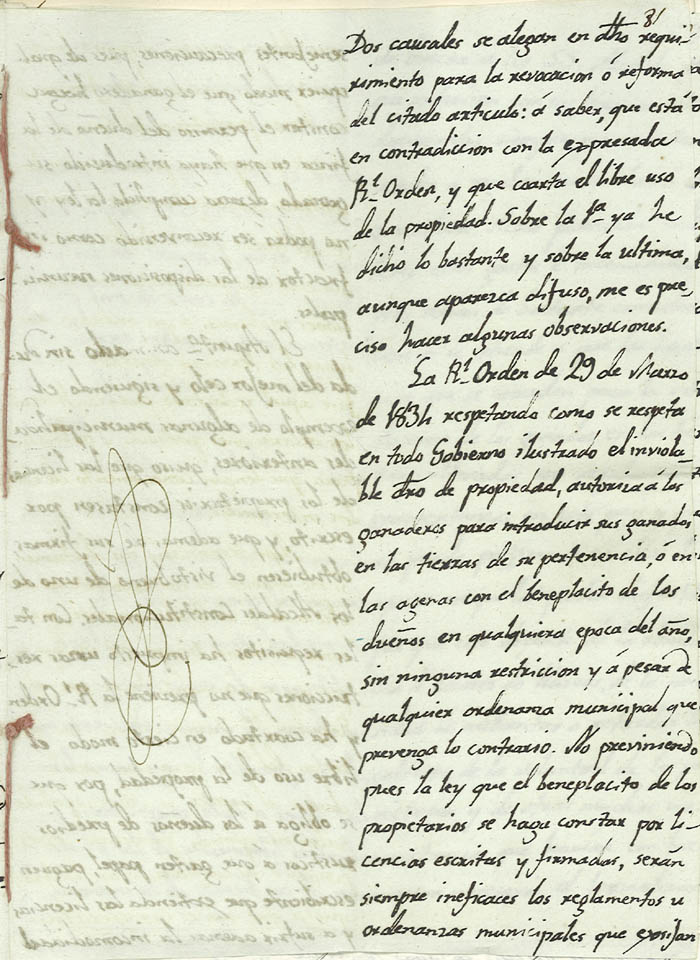 81
Dos causales se alegan en dho requi-
rimiento para la revocacion ó reforma
del citado articulo: á saber, que está
en contradiccion con la expresada
Rl. Orden, y que coarta el libre uso
de la propiedad. Sobre la 1a ya he
dicho lo bastante y sobre la ultima,
aunque aparezca difuso, me es pre-
ciso hacer algunas observaciones.
La Rl. Orden de 29 de Marzo
de 1834 respetando como se respeta
en todo Gobierno ilustrado el inviola-
ble dro de propiedad, autoriza á los
ganaderos para introducir sus ganados
en las tierras de su pertenencia, ó en
las agenas con el beneplacito de los
dueños en qualquiera epoca del año,
sin ninguna restriccion y á pesar de
qualquier ordenanza municipal que
prevenga lo contrario. No previniendo
pues la ley que el beneplacito de los
propietarios se haga constar por li-
cencias escritas y firmadas, serán
siempre ineficaces los reglamentos u
ordenanzas municipales que exijan